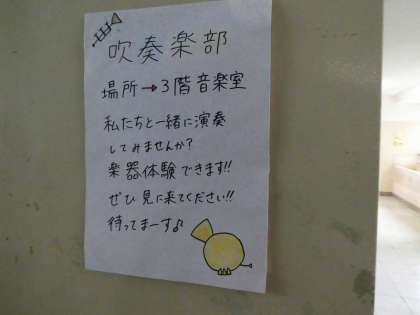 吹奏楽部
場所→3階音楽室
私たちと一緒に演奏
してみませんか?
楽器体験できます!!
ぜひ見に来てください!!
待ってまーす♪